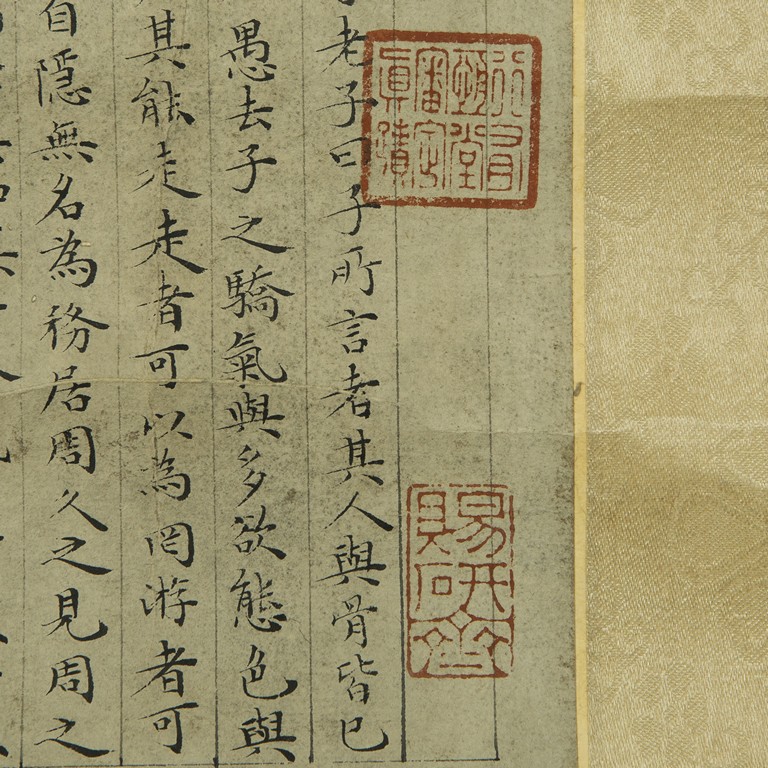 行有恆堂審定真蹟
賜研齋
老子曰子所言者其人與骨皆已
愚去子之驕氣與多欲態色與
其能走走者可以為罔游者可
自隱無名為務居周久之見周之